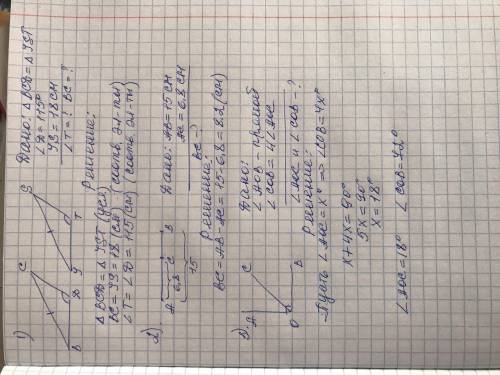 1)
C
S
B
D
Y
T
Дано: △BCD = △YST
∠D = 115°
YS = 18 см
∠T = ? BC = ?
Решение:
△BCD = △YST (усл)
BC = YS = 18 (см) (соотв. эл-ты)
∠T = ∠D = 115 (см) (соотв. эл-ты)
2)
A C B
6,8
15
Дано: AB = 15 см
AC = 6,8 см
BC - ?
Решение:
BC = AB - AC = 15 - 6,8 = 8,2 (см)
3)
A
C
O
B
Дано:
∠AOB - прямой
∠COB = 4∠AOC
∠AOC и ∠COB - ?
Решение:
Пусть ∠AOC = x° => ∠COB = 4x°
x + 4x = 90°
5x = 90°
x = 18°
∠AOC = 18° ∠COB = 72°